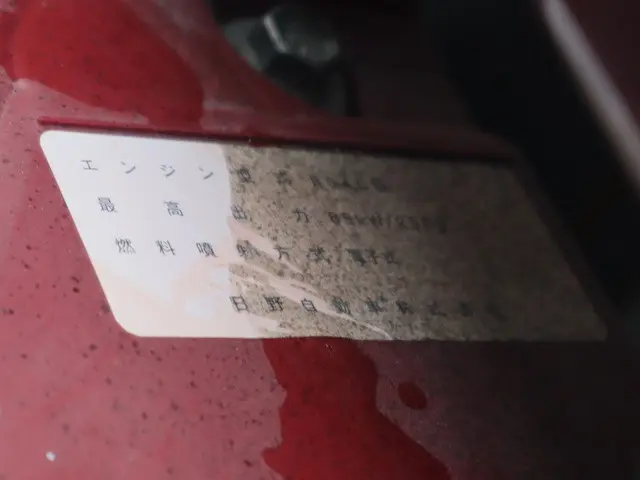 エンジン型式
最高出力
燃料噴射方式 電子式
日野自動車株式会社